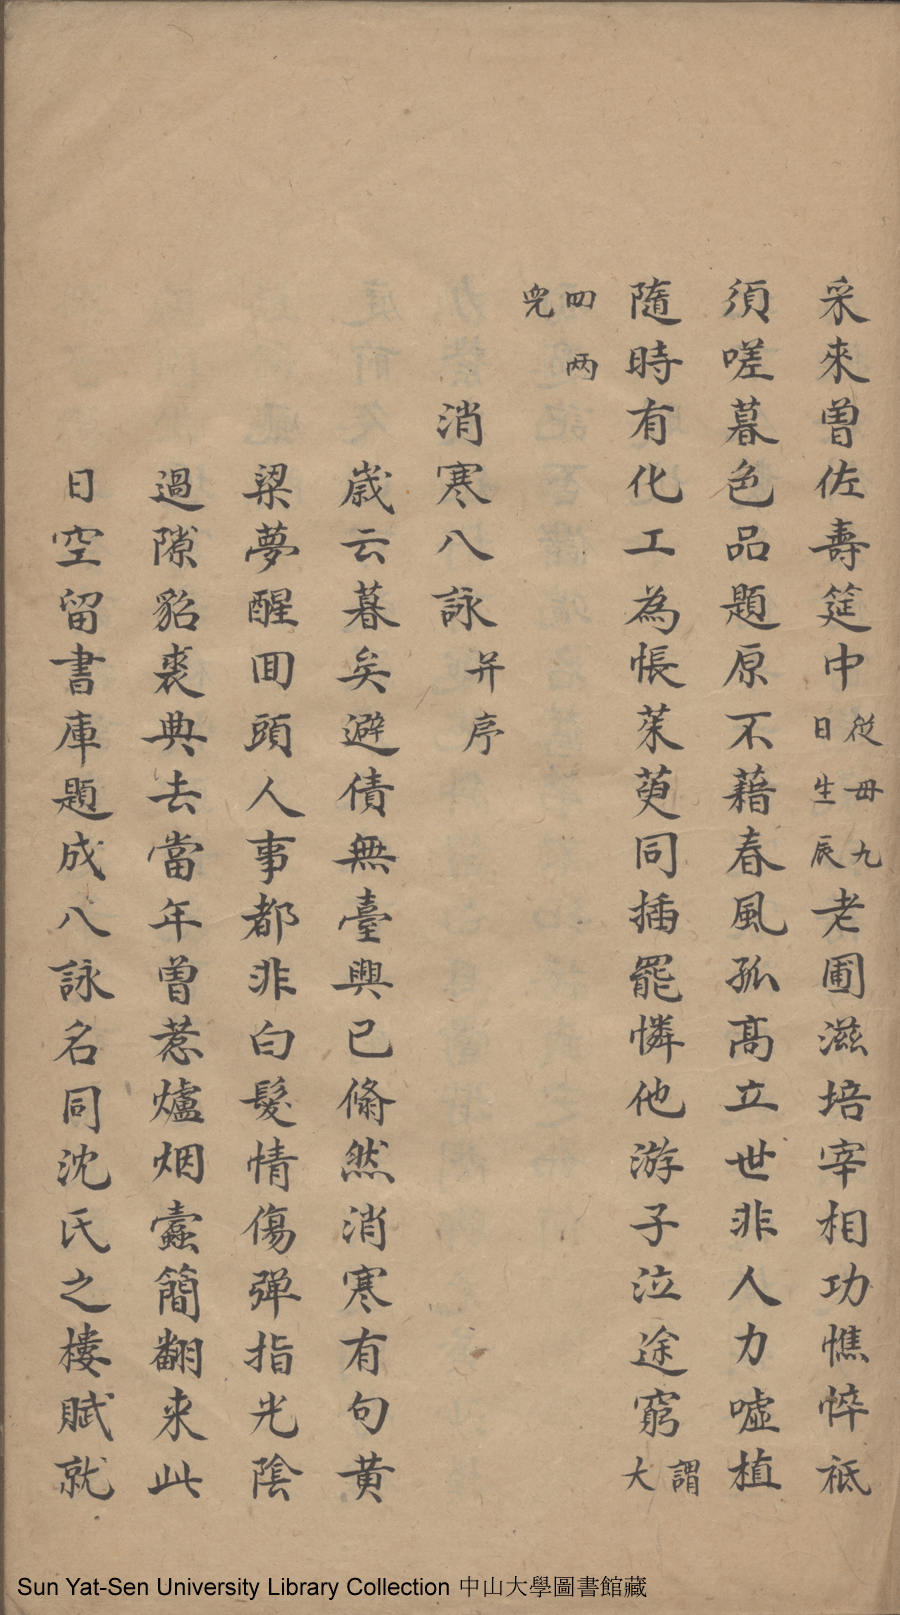 采來曾佐壽筵中從母九日生辰老圃滋培宰相功憔悴祗
須嗟暮色品題原不藉春風孤高立世非人力噓植
隨時有化工為悵茱萸同插罷憐他游子泣途窮謂大
四兩兒
消寒八詠并序
歲云暮矣避債無臺興已翛然消寒有句黄
梁夢醒回頭人事都非白髮情傷彈指光陰
過隙貂裘典去當年曾惹爐烟蠹簡翻来此
日空留書庫題成八詠名同沈氏之樓賦就
Sun Yat-Sen University Library Collection 中山大學圖書館藏